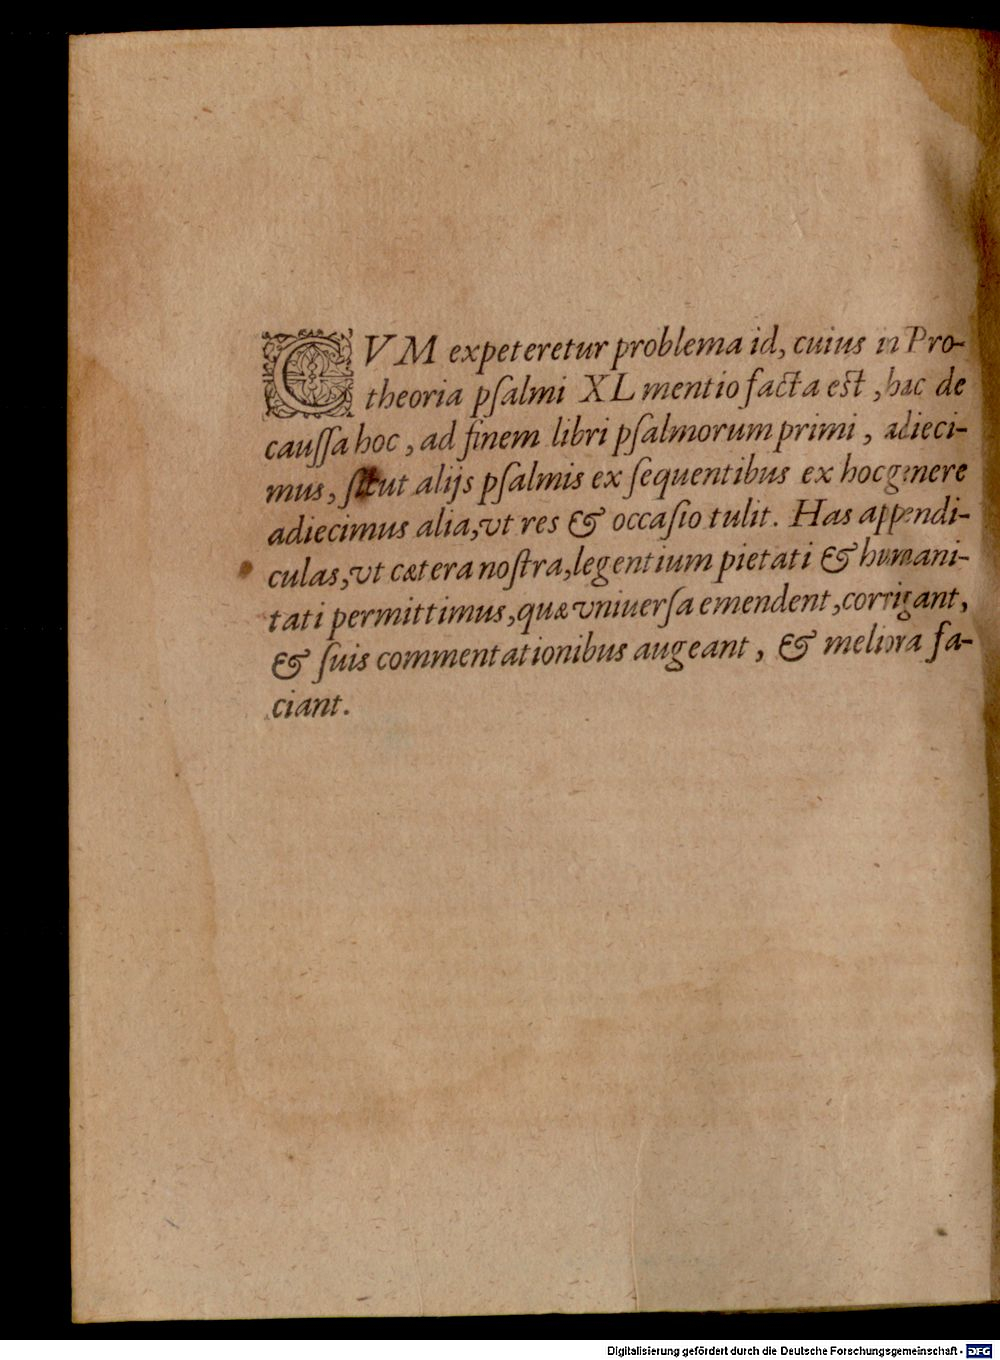 CVM expeteretur problema id, cuius in Pro-
theoria pſalmi XL mentio facta est, hac de
cauſſa hoc, ad finem libri pſalmorum primi, adieci-
mus, ſicut alijs pſalmis ex ſequentibus ex hoc genere
adiecimus alia, vt res & occaſio tulit. Has appendi-
culas, vt cætera noſtra, legentium pietati & humani-
tati permittimus, quæ vniuerſa emendent, corrigant,
& ſuis commentationibus augeant, & meliora fa-
ciant.
Digitalisierung gefördert durch die Deutsche Forschungsgemeinschaft - DFG